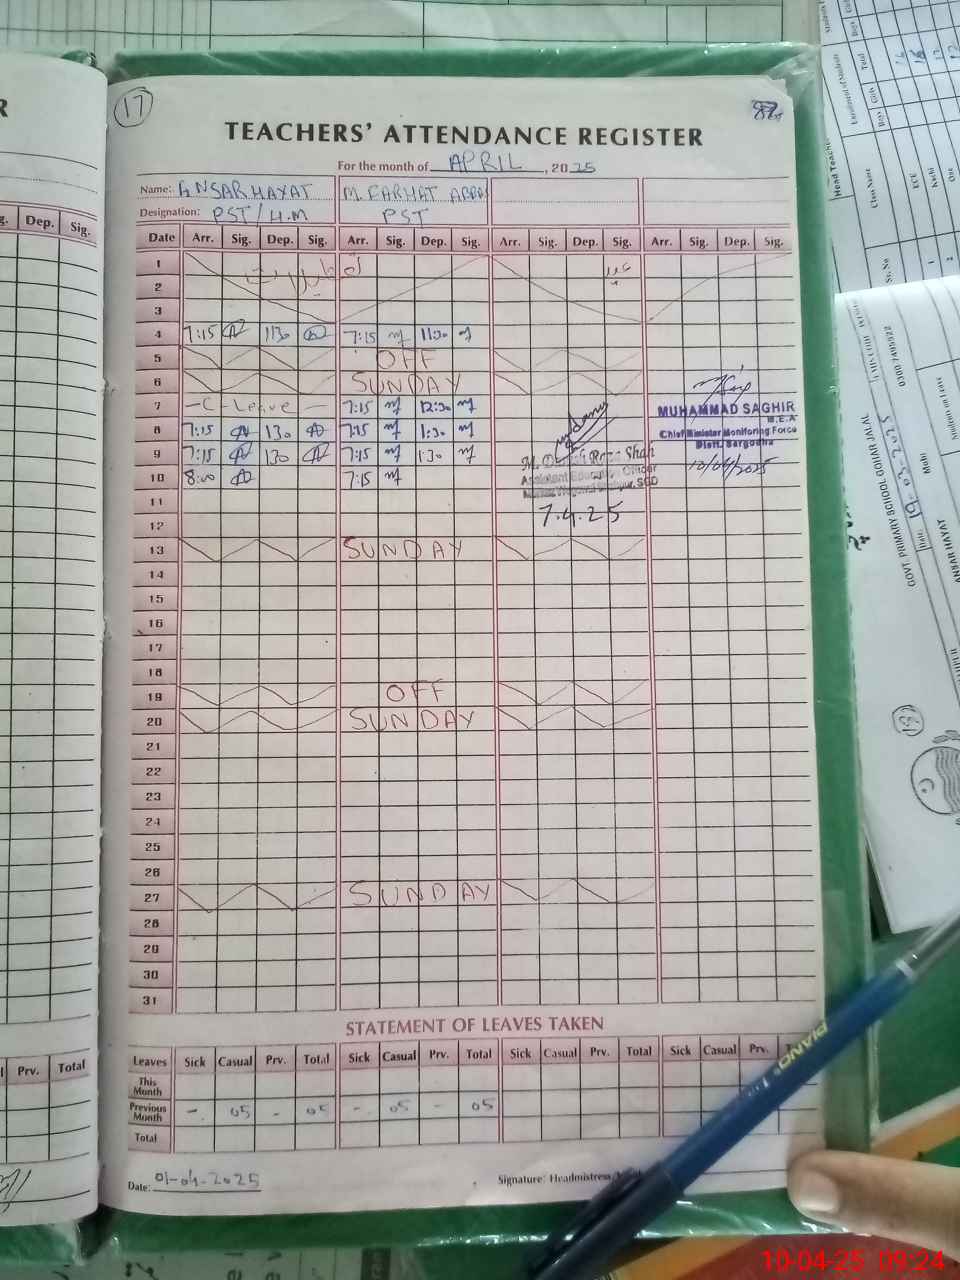 17
87
TEACHERS' ATTENDANCE REGISTER
For the month of APRIL, 2025
Name: ANSAR HAYAT M. FARHAT ABBAS
Designation: PST/H.M PST
Date Arr. Sig. Dep. Sig. Arr. Sig. Dep. Sig. Arr. Sig. Dep. Sig. Arr. Sig. Dep. Sig.
1
2 تعطیلات عید
3
4 7:15 1130 7:15 11:30
5 OFF
6 SUNDAY
7 -C-Leave- 7:15 12:30
8 7:15 130 7:15 1:30
9 7:15 130 7:15 1:30
10 8:00 7:15
11
12
13 SUNDAY
14
15
16
17
18
19 OFF
20 SUNDAY
21
22
23
24
25
26
27 SUNDAY
28
29
30
31
Raza Shah
Assistant Education Officer
7.4.25
MUHAMMAD SAGHIR
M.E.A
Chief Minister Monitoring Force
Distt. Sargodha
10/04/2025
STATEMENT OF LEAVES TAKEN
Leaves Sick Casual Prv. Total Sick Casual Prv. Total Sick Casual Prv. Total Sick Casual Prv.
This Month
Previous Month - 05 - 05 - 05 - 05
Total
Date: 01-04-2025
Signature: Headmistress/
g. Dep. Sig.
Prv. Total
Head Teacher
Class Name
Enrollment of Students
Boys Girls Total
ECE
Kachi
One
Sr. No
1
2
GOVT PRIMARY SCHOOL GONAR JALAL
Date: 19-03-2025
0300 7495922
Students on Leave
Multi
ANSAR HAYAT
131
PIANO
10-04-25 09:24